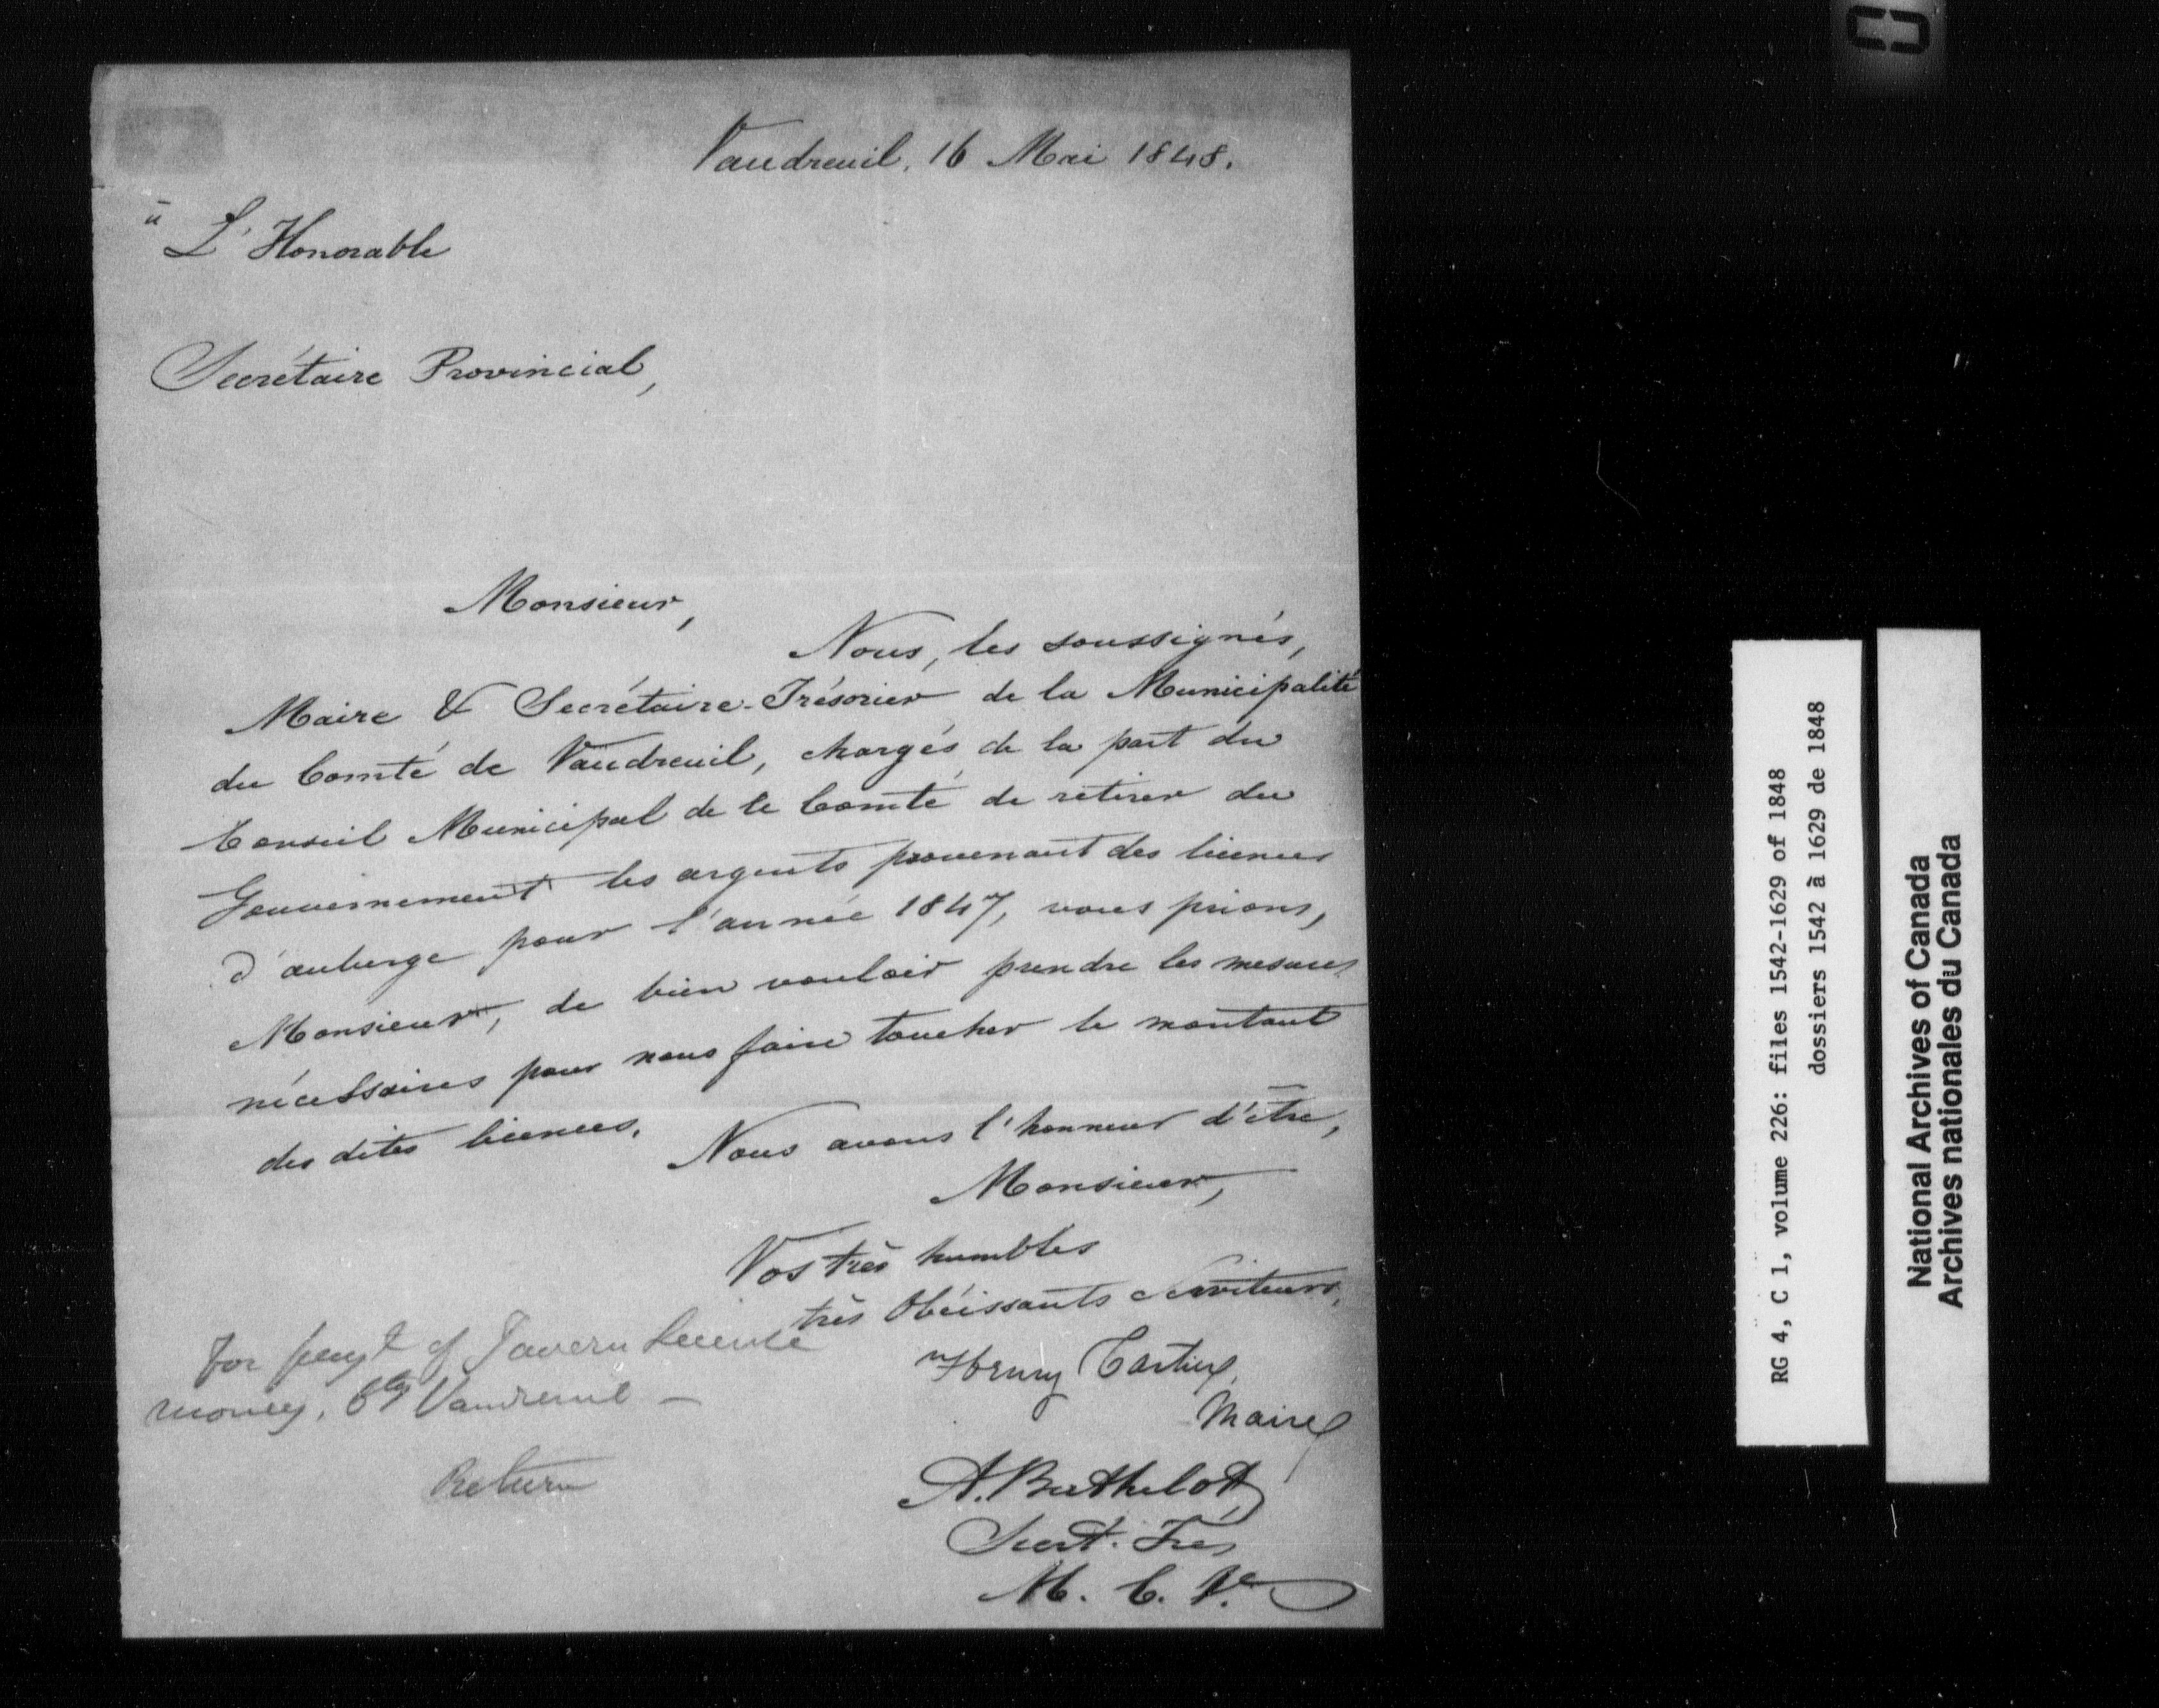 Vaudreuil, 16 Mai 1848.
à L'Honorable
Secrétaire Provincial,
Monsieur,
Nous, les soussignés,
Maire & Secrétaire-Trésorier de la Municipalité
du Comté de Vaudreuil, chargés de la part du
Conseil Municipal de ce Comté de retirer du
Gouvernement les argents provenant des licences
d'auberge pour l'année 1847, vous prions,
Monsieur, de bien vouloir prendre les mesures
nécessaires pour nous faire toucher le montant
des dites licences.
Nous avons l'honneur d'être,
Monsieur,
Vos très humbles
très Obéissants Serviteurs,
Henry Cartier,
Maire
A. Berthelot
Secrt. Trés
M. C. V.
For paymt of Tavern Licence
money, Cty Vaudreuil —
Return
RG 4, C 1, volume 226: files 1542-1629 of 1848
dossiers 1542 à 1629 de 1848
National Archives of Canada
Archives nationales du Canada